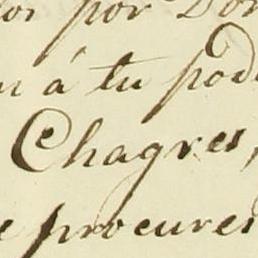 por Don
á tu pod
Chagres,
procures